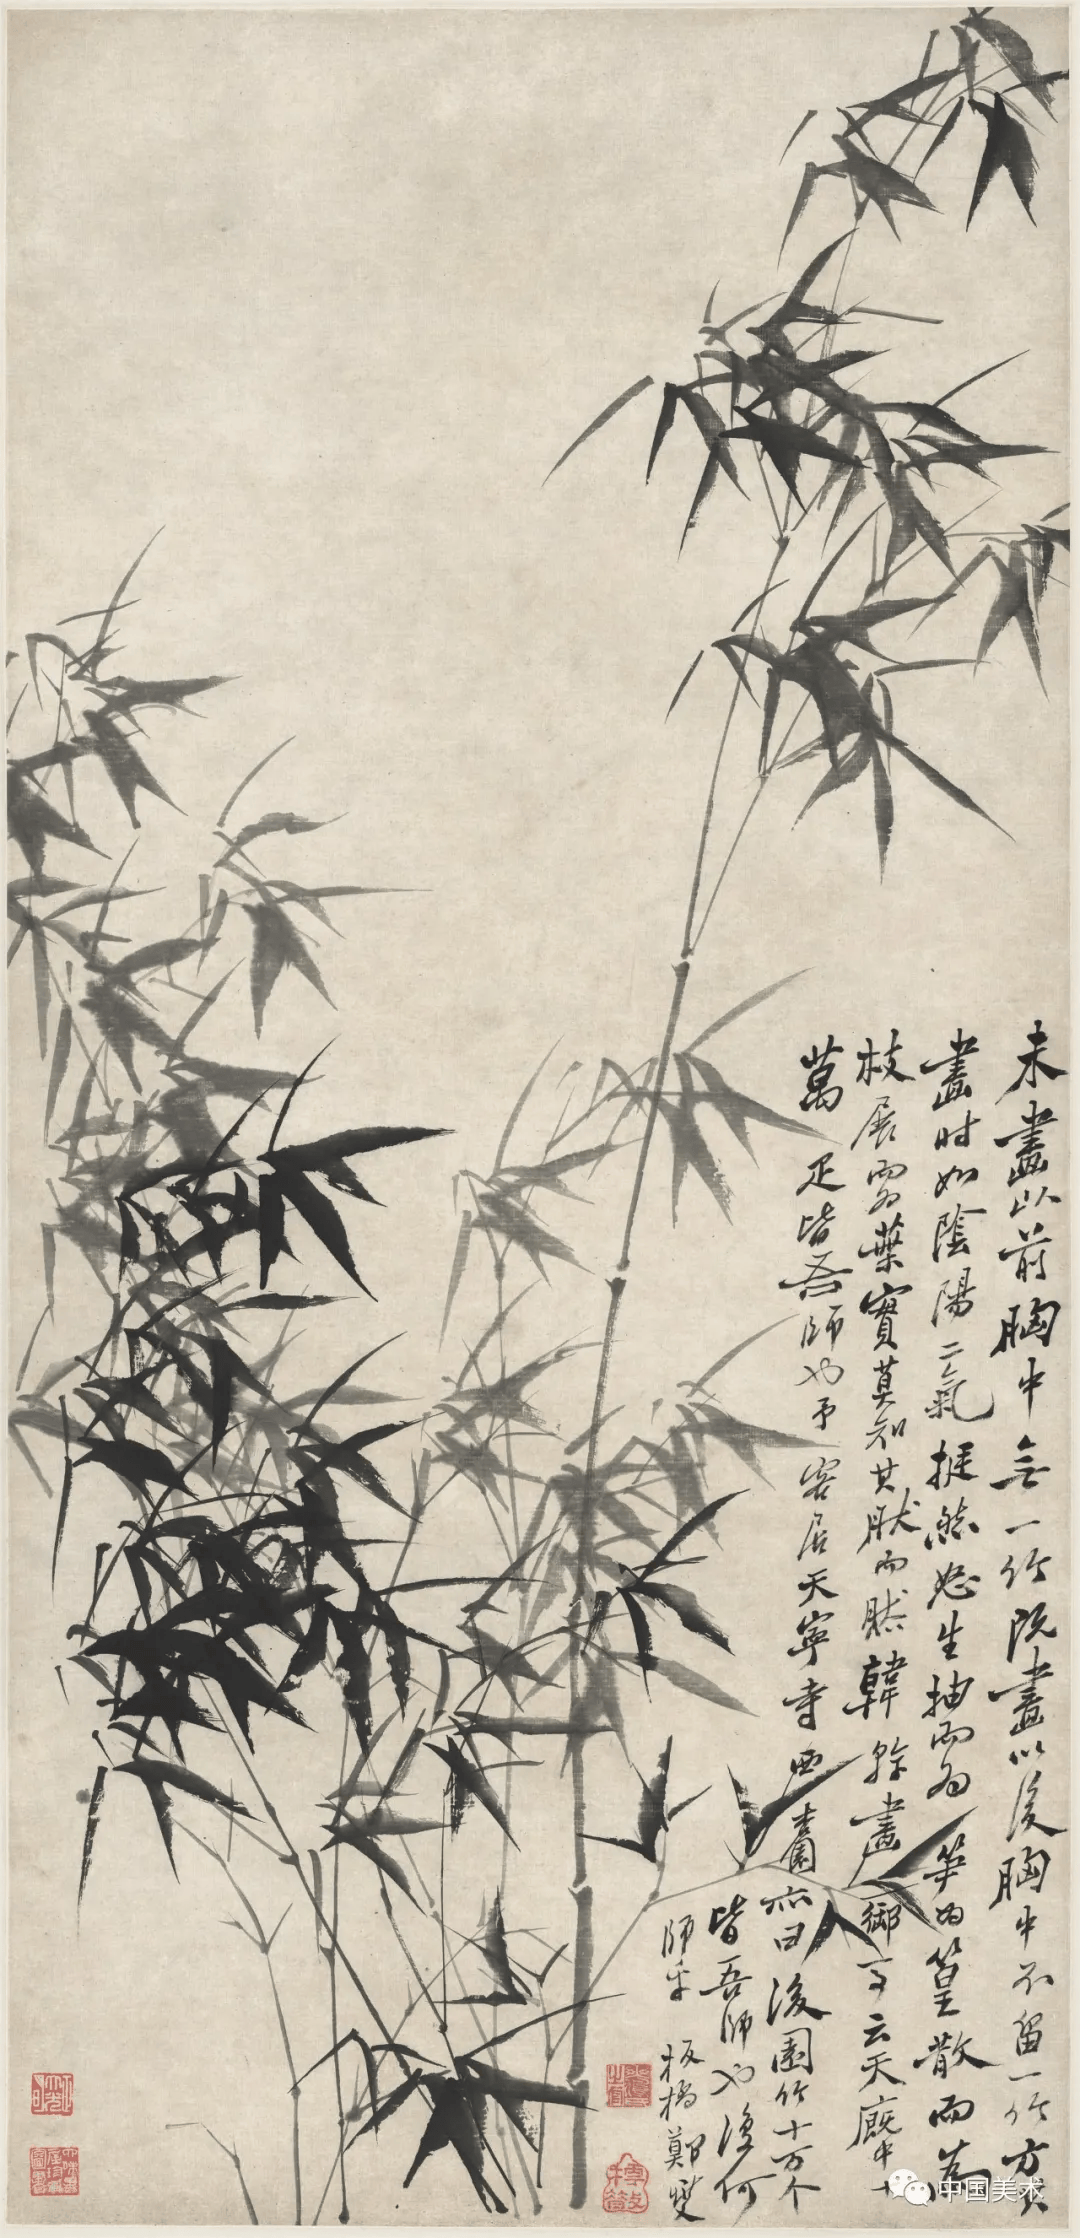 未畫以前胸中无一竹既畫以後胸中不留一竹方其
畫時如陰陽二氣挺然怒生抽而為筍為篁散而為
枝展而為葉實莫知其然而然韓幹畫御馬云天廄中十
萬疋皆吾師也予客居天寧寺西杏園亦曰後園竹十万个
皆吾師也復何
師乎 板橋鄭燮
中国美术